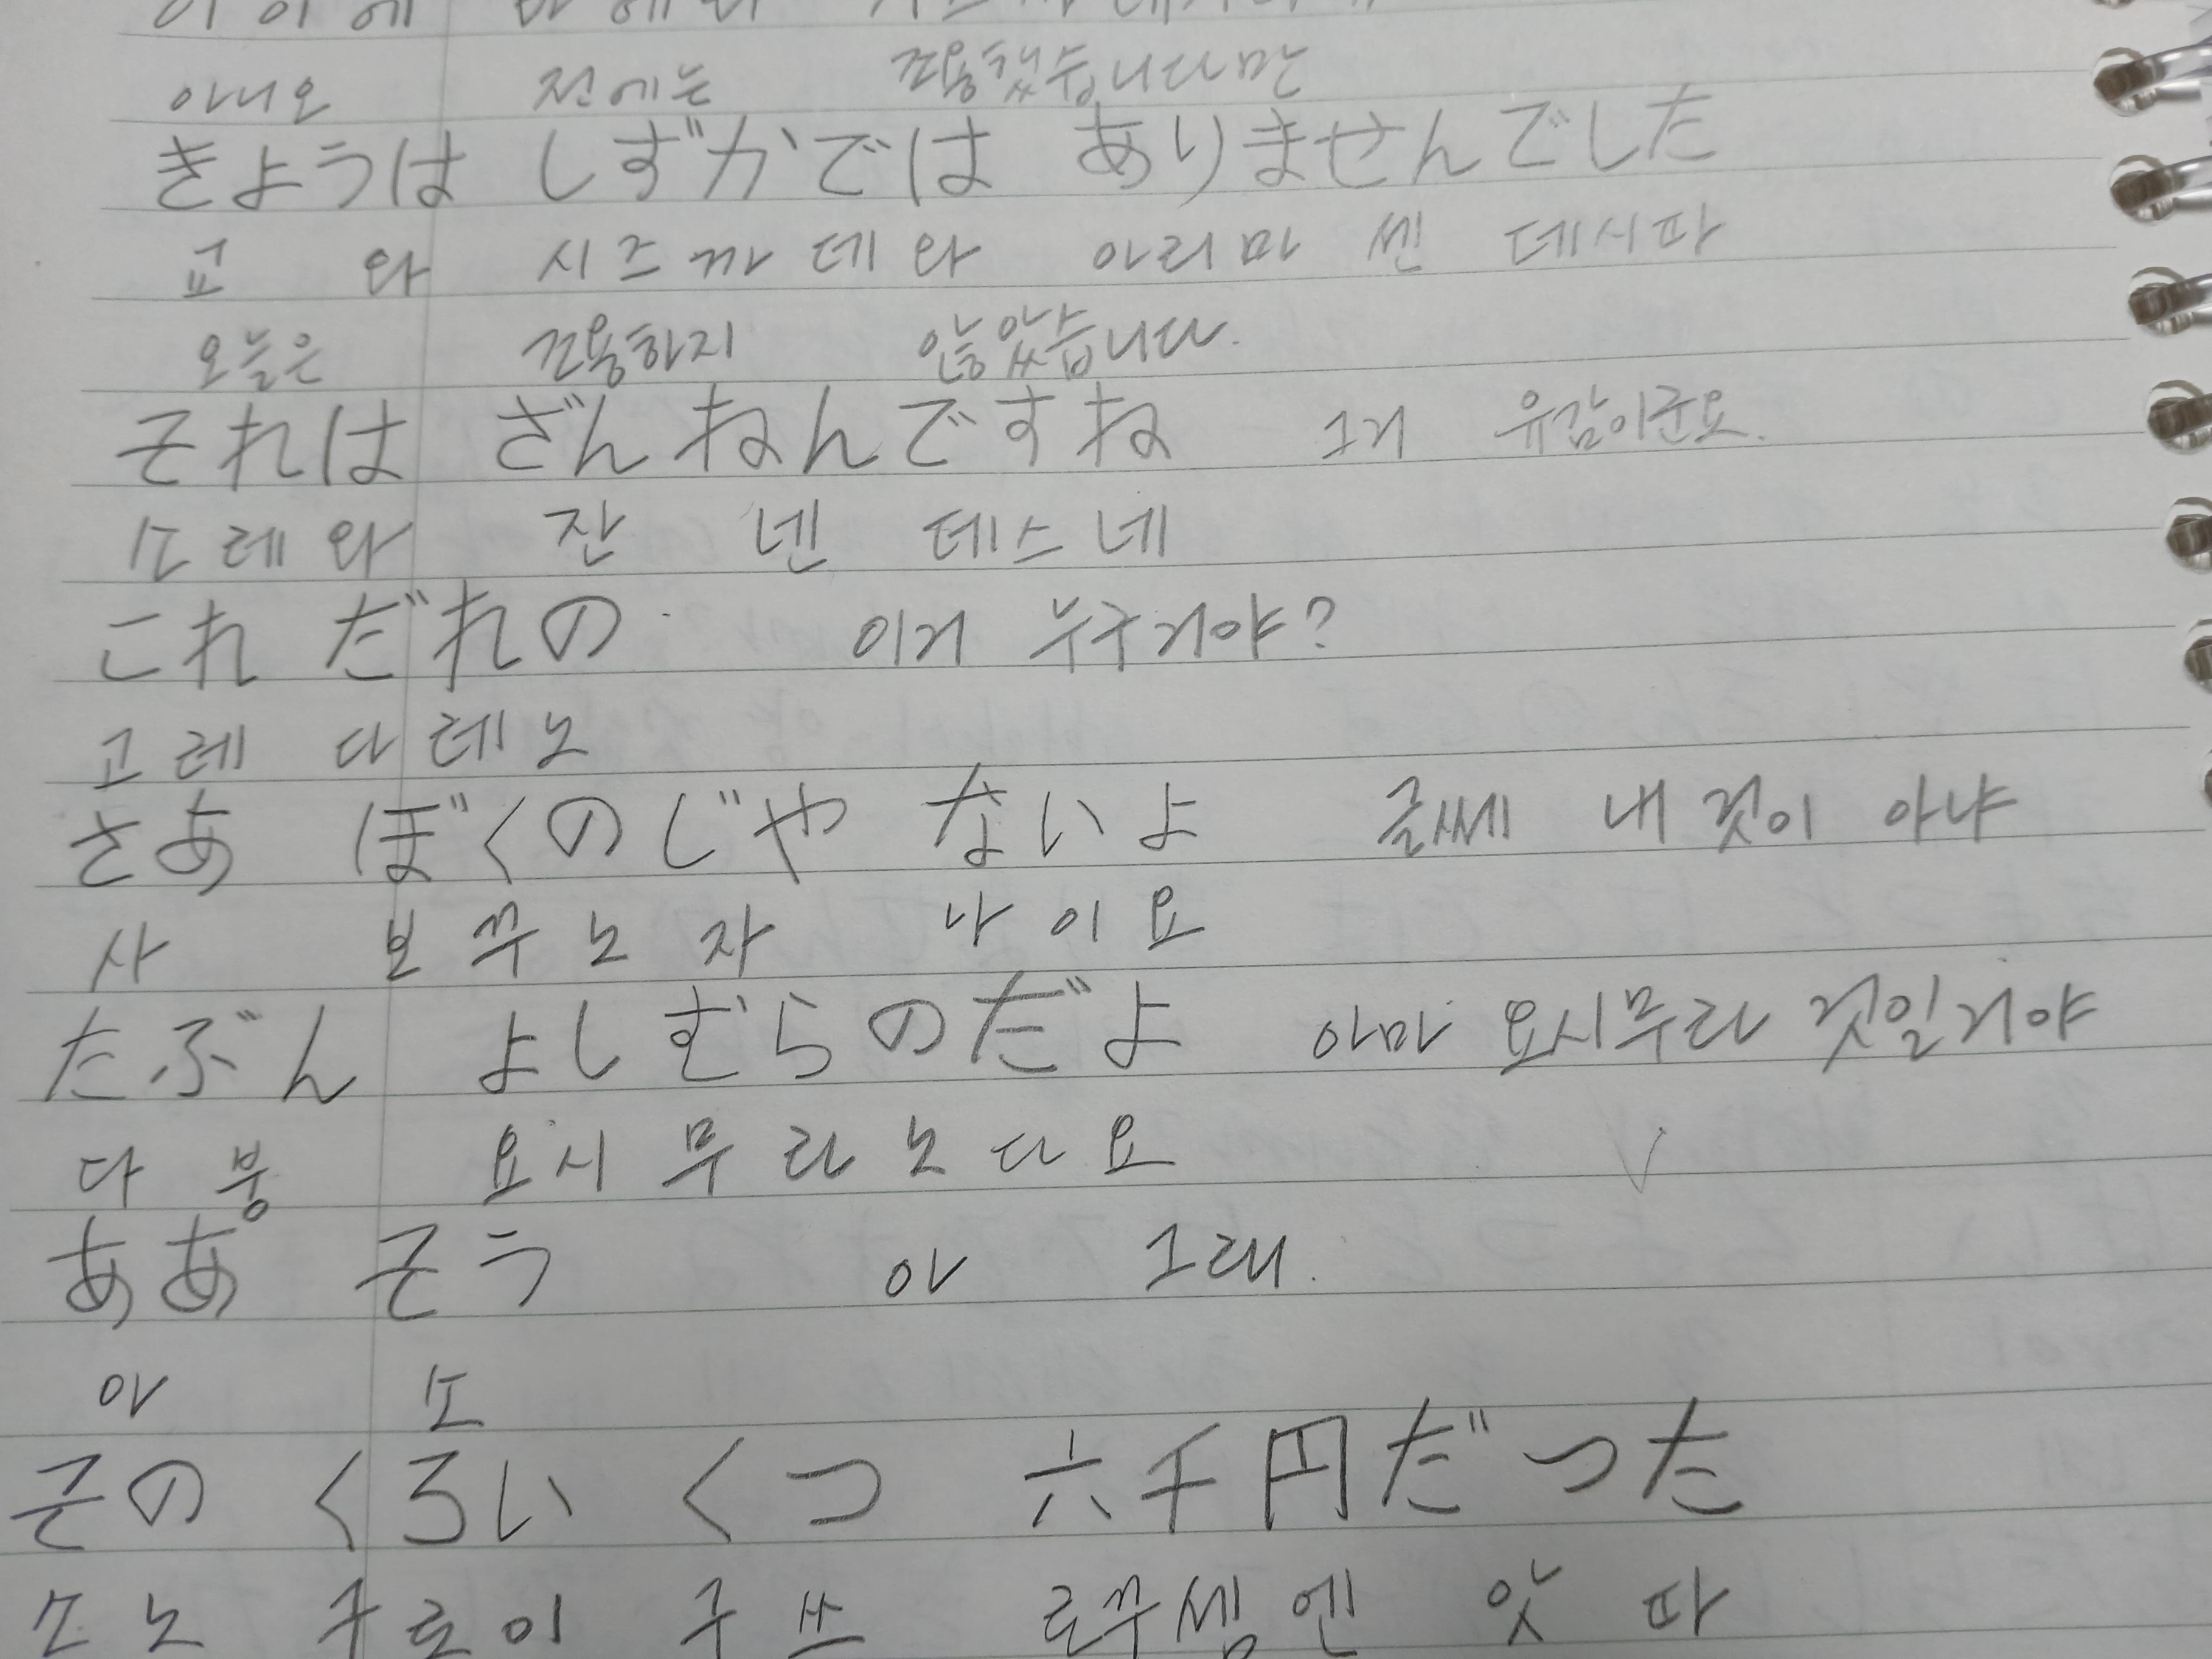 아니오 전에는 조용했습니다만
きようは しずかでは ありませんでした
교 와 시즈까데와 아리마센 데시따
오늘은 조용하지 않았습니다.
それは ざんねんですね 그거 유감이군요.
소레와 잔 넨 데스네
これ だれの 이거 누구거야?
고레 다레노
さあ ぼくのじや ないよ 글쎄 내 것이 아냐
사 보꾸노자 나이요
たぶん よしむらのだよ 아마 요시무라 것일거야
다붕 요시무라노다요
ああ そう 아 그래.
아 소
その くろい くつ 六千円だつた
소노 구로이 구쯔 로꾸셍엔 앗 따